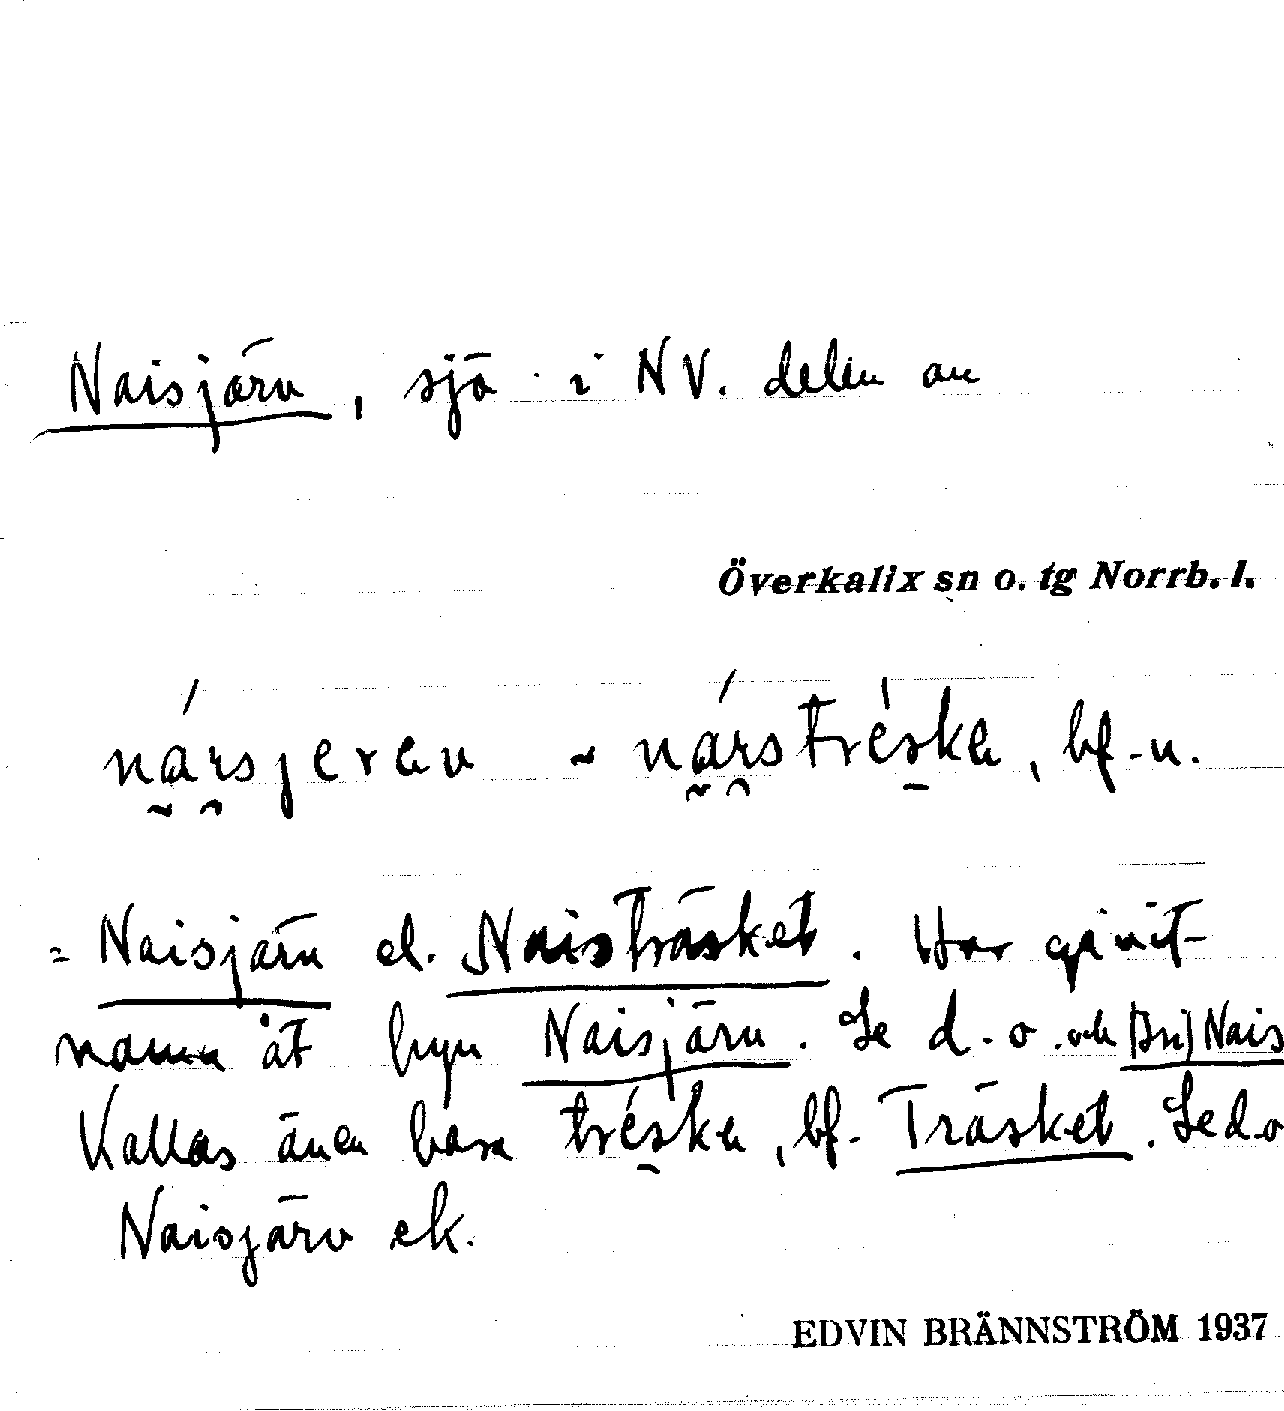 Naisjärv, sjö i NV. delen av
Överkalix sn o. tg Norrb. l.
bf -n.
= Naisjärv el. Naisträsket. Har givit
namn åt byn Naisjärv. Se d. o. och Nais
Kallas även bara bf. Träsket. Se d.o
Naisjärv ek.
EDVIN BRÄNNSTRÖM 1937